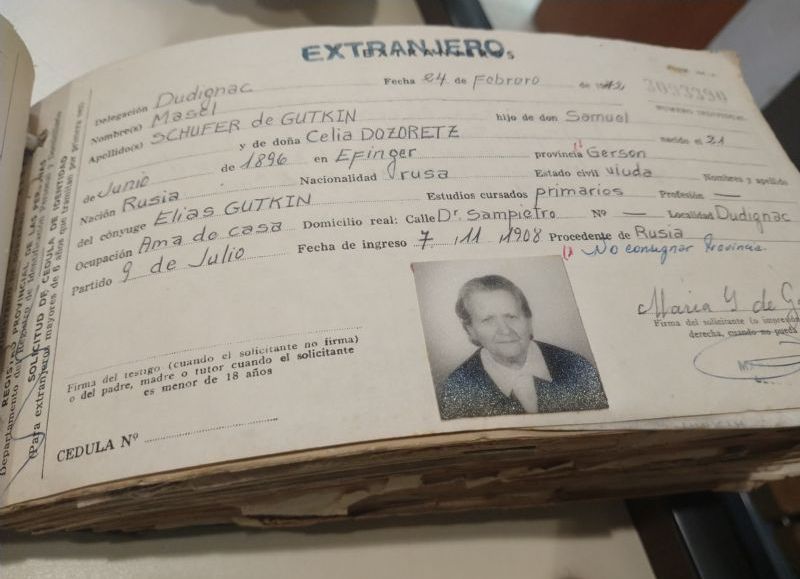 EXTRANJERO
Delegación Dudignac Fecha 24 de Febrero de
3093390
Nombre(s) Masel
Apellido(s) SCHUFER de GUTKIN hijo de don Samuel
y de doña Celia DOZORETZ nacido el 21
de Junio de 1896 en Efinger provincia Gerson
Nación Rusia Nacionalidad rusa Estado civil viuda Nombres y apellido
del cónyuge Elias GUTKIN Estudios cursados primarios Profesión —
Ocupación Ama de casa Domicilio real: Calle Dr. Sampietro Nº — Localidad Dudignac
Partido 9 de Julio Fecha de ingreso 7 11 1908 Procedente de Rusia
(1) No consignar Provincia.
Firma del solicitante (o impresión
derecha, cuando no pueda
Firma del testigo (cuando el solicitante no firma)
o del padre, madre o tutor cuando el solicitante
es menor de 18 años
CEDULA Nº
REGISTRO PROVINCIAL DE LAS PERSONAS
SOLICITUD DE CEDULA DE IDENTIDAD
(Para extranjeros mayores de 6 años que tramitan por primera vez)